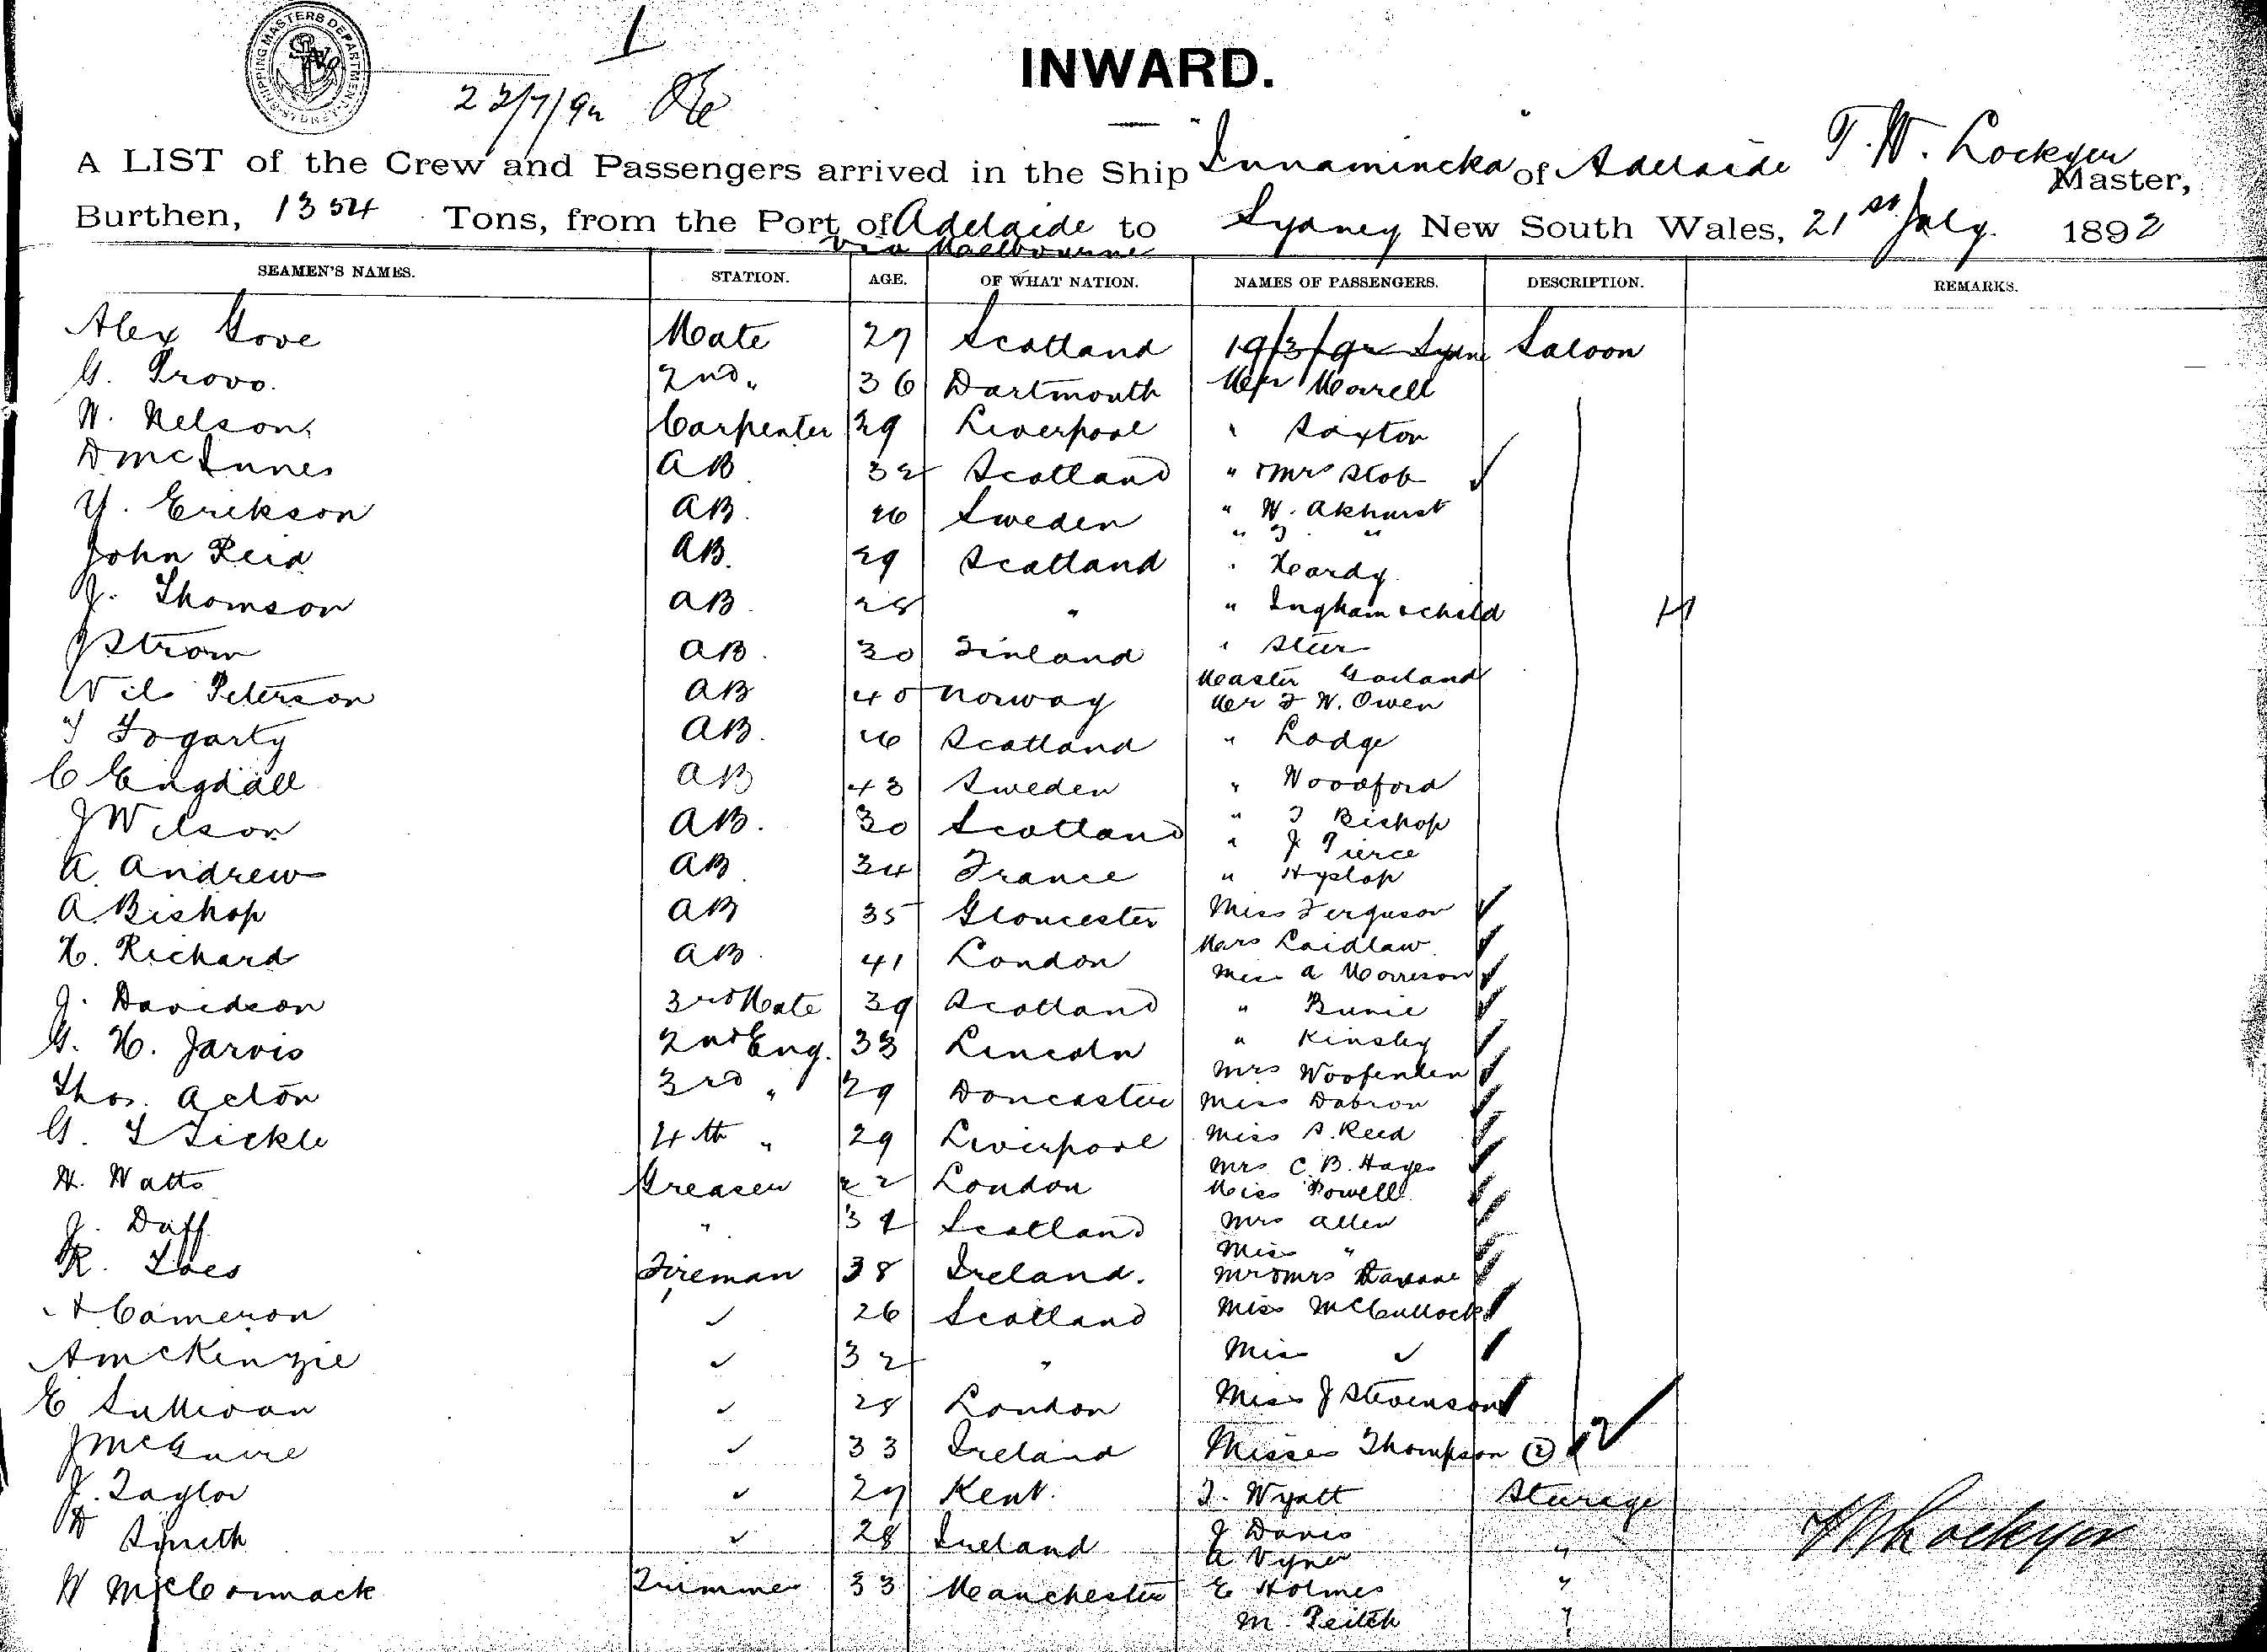 SHIPPING MASTERS DEPARTMENT SYDNEY
1
22/7/92
INWARD.
A LIST of the Crew and Passengers arrived in the Ship Innamincka of Adelaide T. W. Lockyer Master,
Burthen, 1354 Tons, from the Port of Adelaide to Sydney New South Wales, 21st July. 1892
via Melbourne
SEAMEN'S NAMES. STATION. AGE. OF WHAT NATION. NAMES OF PASSENGERS. DESCRIPTION. REMARKS.
Alex Gove Mate 27 Scotland Saloon
G. Provo. 2nd " 36 Dartmouth Mr Morell
W. Nelson Carpenter 29 Liverpool " Saxton
D McInnes AB 32 Scotland " & Mrs Stob
Y. Erikson AB. 26 Sweden " W. Akhurst
" J "
John Reid AB. 29 Scotland " Hardy
J. Thomson AB 28 " " Ingham & child
J Strom AB. 30 Finland " Steer
Master Garland
Nils Peterson AB 40 Norway Mr F W. Owen
T Fogarty AB. 26 Scotland " Lodge
C Engdall AB 43 Sweden " Woodford
J Wilson AB. 30 Scotland " J Bishop
" J Pierce
A. Andrew AB 34 France " Hyslop
A. Bishop AB 35 Gloucester Miss Ferguson
H. Richard AB. 41 London Mrs Laidlaw
Miss A Morrison
J. Davidson 3rd Mate 39 Scotland " Bunie
G. H. Jarvis 2nd Eng. 33 Lincoln " Kinsley
Mrs Woofenden
Thos. Acton 3rd " 29 Doncaster Miss Dobson
G. T Tickle 4th " 29 Liverpool Miss S. Reed
Mrs C. B. Hayes
H. Watts Greaser 22 London Miss Powell
J. Duff " 32 Scotland Mrs Allen
Miss "
R. Fireman 38 Ireland. Mr & Mrs
Cameron " 26 Scotland Miss McCullock
A McKenzie " 32 " Miss "
E Sullivan " 28 London Miss J Stevenson
J McGuire " 33 Ireland Misses Thompson (2)
J. Taylor " 27 Kent. J. Wyatt Steerage
Smith " 28 Ireland J Davis
A Vyner "
W McCormack Trimmer 33 Manchester E Holmes "
M. Peitch "
T W Lockyer